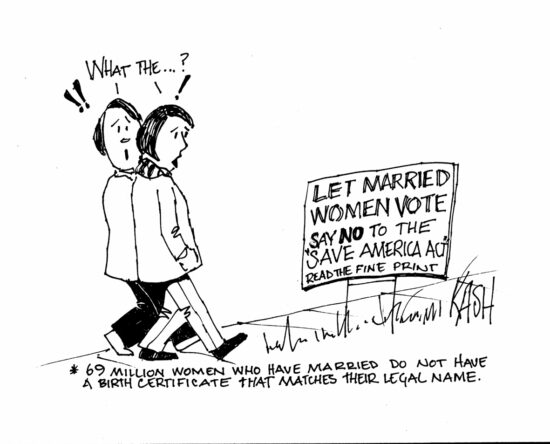 WHAT THE...?
!!
!
LET MARRIED
WOMEN VOTE
SAY NO TO THE
"SAVE AMERICA ACT"
READ THE FINE PRINT
KASH
* 69 MILLION WOMEN WHO HAVE MARRIED DO NOT HAVE
A BIRTH CERTIFICATE THAT MATCHES THEIR LEGAL NAME.